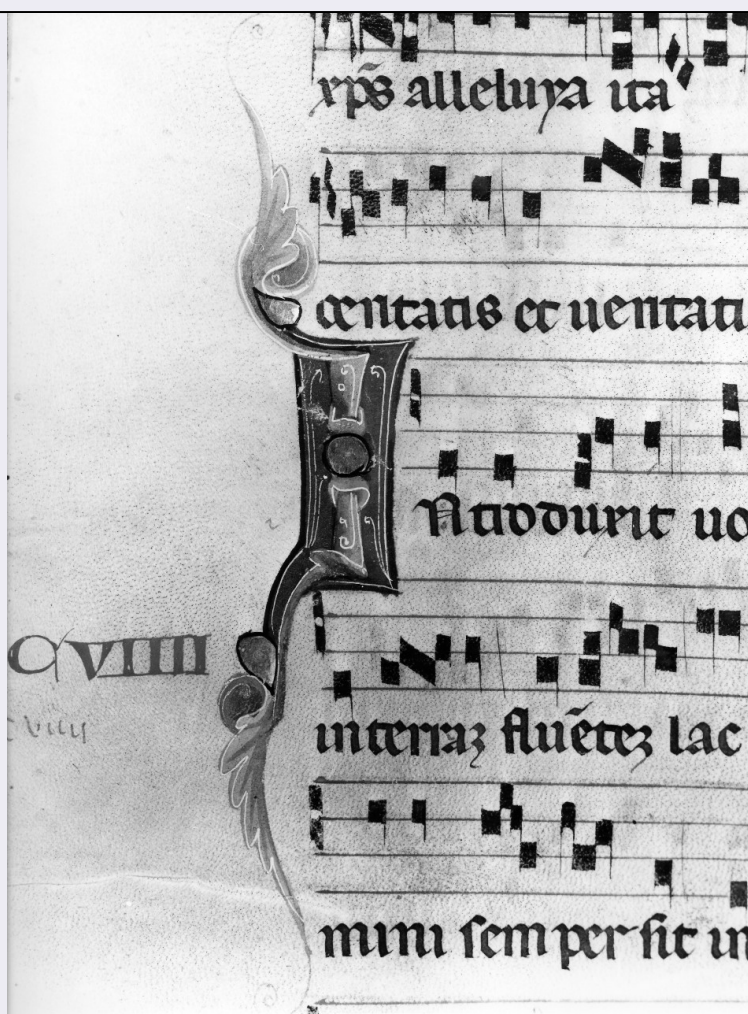 xp̄s alleluya ita
centatis et ueritati
INtrodurit uo
CVIIII
interraz fluētez lac
cviiii
mini semper sit in